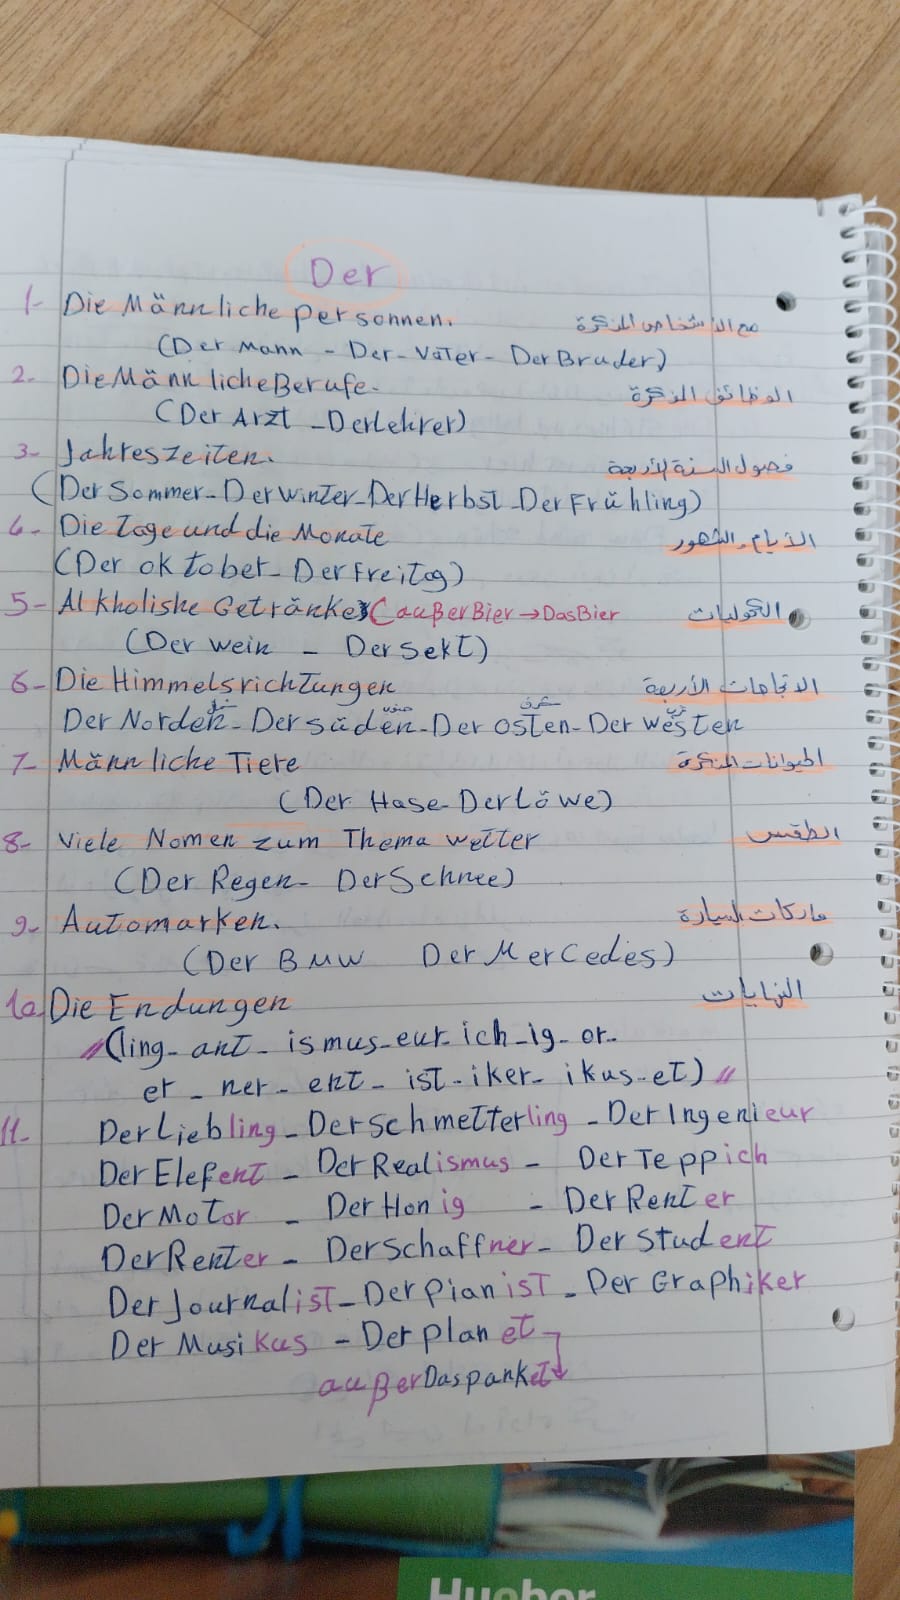 Der
1- Die Männliche personnen. مع الأشخاص المذكرة
(Der Mann - Der-Vater- Der Bruder)
2- Die Männliche Berufe- الوظائف المذكرة
(Der Arzt -Der Lehrer)
3- Jahreszeiten. فصول السنة الأربعة
(Der Sommer-Der Winter-Der Herbst-Der Frühling)
4- Die Tage und die Monate الأيام والشهور
(Der oktober-Der Freitag)
5- Alkholishe Getränke (außer Bier → Das Bier الكحوليات
(Der Wein - Der Sekt)
6- Die Himmelsrichtungen الاتجاهات الأربعة
شمال جنوب شرق غرب
Der Norden-Der süden-Der osten-Der westen
7- Männliche Tiere الحيوانات المذكرة
(Der Hase-Der Löwe)
8- Viele Nomen zum Thema wetter الطقس
(Der Regen- Der Schnee)
9- Automarken. ماركات السيارة
(Der BMW Der Mercedes)
10 Die Endungen النهايات
"(ling- ant- ismus-eur-ich-ig-or-
er - ner - ent- ist-iker- ikus-et)"
11- Der Liebling-Der Schmetterling -Der Ingenieur
Der Elefent - Der Realismus - Der Teppich
Der Motor - Der Honig - Der Renter
Der Renter - Der Schaffner- Der Student
Der Journalist-Der pianist - Der Graphiker
Der Musikus - Der planet
außer Das panket
Hueber